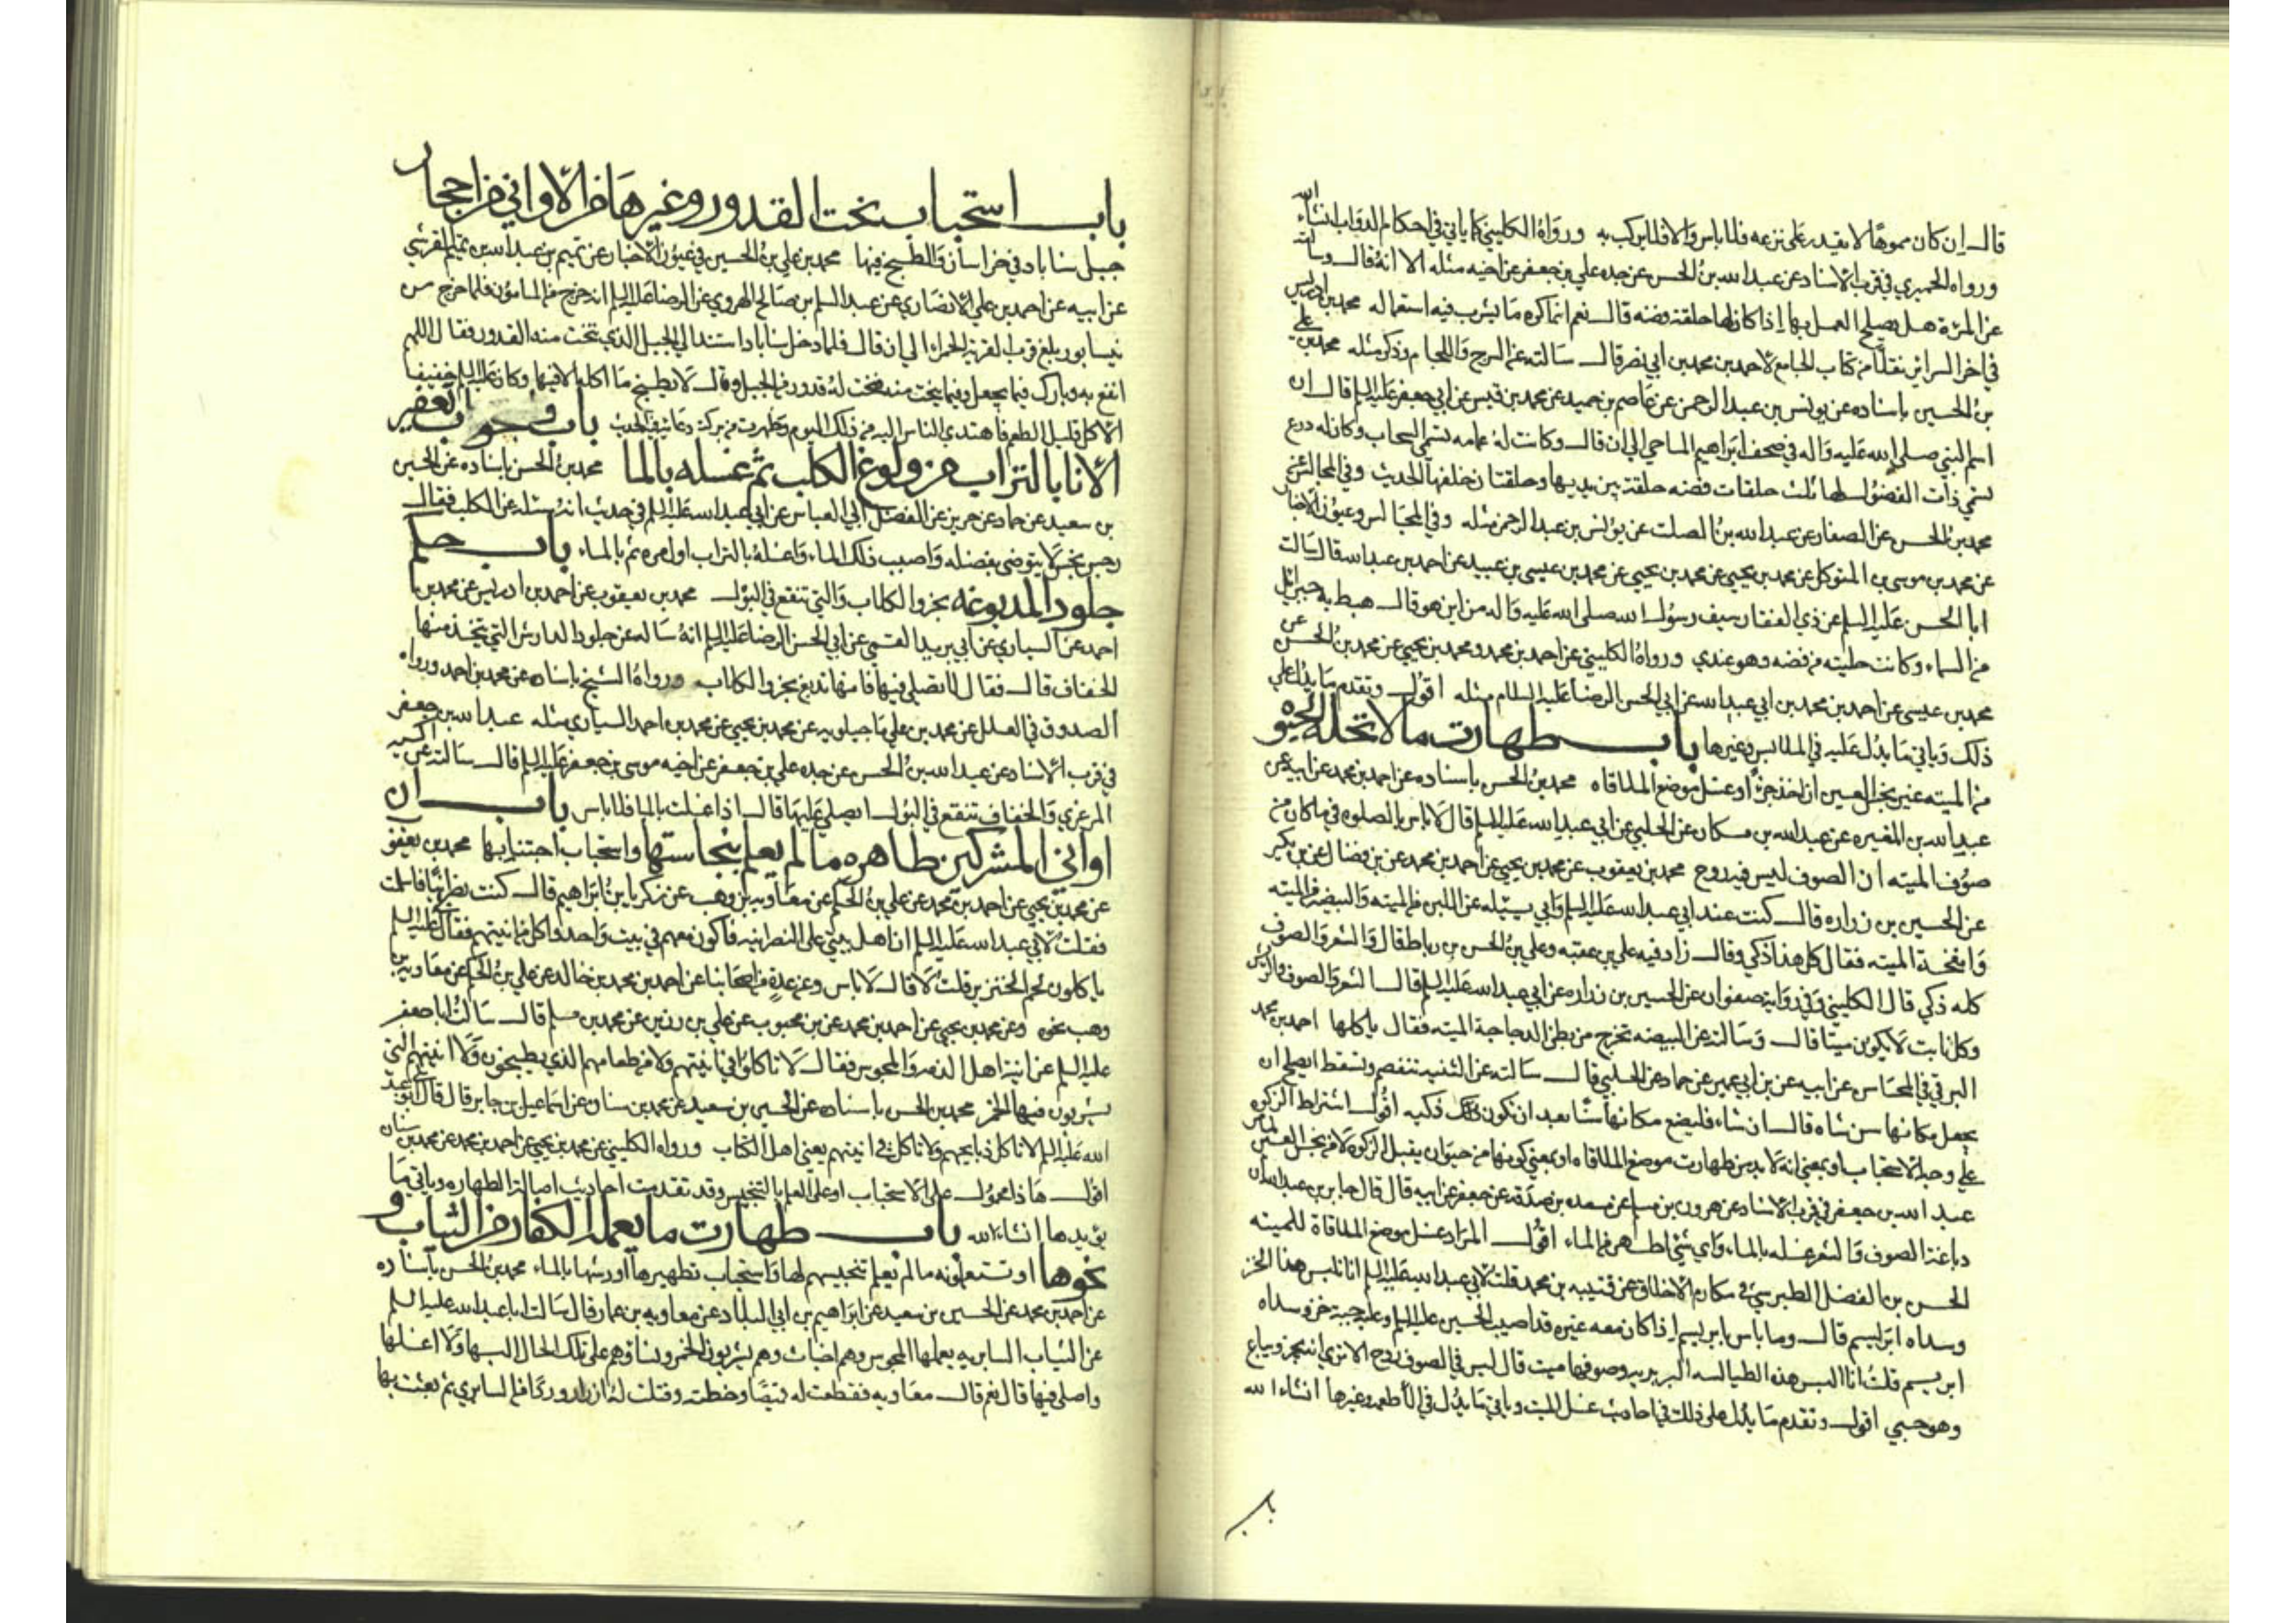 قال إن كان مموها لا يقدر على نزعه فلا باس والا فلا يركب به ورواه الكليني كما ياتي في احكام الدواب انشاء الله
ورواه الحميري في قرب الاسناد عن عبد الله بن الحسن عن جده علي بن جعفر عن اخيه مثله الا انه قال وسالته
عن المرة هل يصلح العمل بها إذا كان لها حلقة فضه قال نعم انما كره ما يشرب فيه استعماله محمد بن ادريس
في اخر السرائر نقلا من كتاب الجامع لاحمد بن محمد بن ابي نصر قال سالته عن السرج واللجام وذكر مثله محمد بن علي
بن الحسين باسناده عن يونس بن عبد الرحمن عن عاصم بن حميد عن محمد بن قيس عن ابي جعفر عليه السلم قال ان
اسم النبي صلى الله عليه واله في صحف ابراهيم الماحي الى ان قال وكانت له عمامه تسمى السحاب وكان له درع
تسمى ذات الفضول لها ثلث حلقات فضه حلقة بين يديها وحلقتان خلفها الحديث وفي المجالس عن
محمد بن الحسن عن الصفار عن عبد الله بن الصلت عن يونس بن عبد الرحمن مثله وفي المجالس وعيون الاخبار
عن محمد بن موسى بن المتوكل عن محمد بن يحيى عن محمد بن يحيى عن محمد بن عيسى بن عبيد عن احمد بن عبد الله قال سالت
ابا الحسن عليه السلم عن ذي الفقار سيف رسول الله صلى الله عليه واله من اين هو قال هبط به جبرائيل
من السماء وكانت حليته من فضه وهو عندي ورواه الكليني عن احمد بن محمد ومحمد بن يحيى عن محمد بن الحسن عن
محمد بن عيسى عن احمد بن محمد بن ابي عبد الله عن ابي الحسن الرضا عليه السلام مثله اقول وتقدم ما يدل على
ذلك وياتي ما يدل عليه في الملابس وغيرها باب طهارت مالا تحله الحيو
من الميته غير نجس العين ان اخذ جزا او غسل موضع الملاقاه محمد بن الحسن باسناده عن احمد بن محمد عن ابيه عن
عبد الله بن المغيره عن عبد الله بن مسكان عن الحلبي عن ابي عبد الله عليه السلم قال لا باس بالصلوه في ما كان من
صوف الميته ان الصوف ليس فيه روح محمد بن يعقوب عن محمد بن يحيى عن احمد بن محمد عن بن فضال عن بن بكير
عن الحسين بن زراره قال كنت عند ابي عبد الله عليه السلم وابي يسئله عن اللبن من الميته والبيضه من الميته
وانفخة الميته فقال كل هذا ذكي وقال زاد فيه علي بن عقبه وعلي بن الحسن بن رباط قال والشعر والصوف
كله ذكي قال الكليني وفي رواية صفوان عن الحسين بن زراره عن ابي عبد الله عليه السلم قال الشعر والصوف والريش
وكل نابت لا يكون ميتا قال وسالته عن البيضه تخرج من بطن الدجاجة الميته فقال ياكلها احمد بن محمد
البرقي في المحاسن عن ابيه عن بن ابي عمير عن حماد عن الحلبي قال سالته عن الثنيه تنفصم وتسقط ايصلح ان
يجعل مكانها سن شاه قال ان شاء فليضع مكانها سنا بعد ان تكون ذكيه اقول اشتراط الزكوه
على وجه الاستحباب او بمعنى انه لا بد من طهارت موضع الملاقاه او بمعنى كونها من حيوان يقبل الزكوه لا من نجس العين
عبد الله بن جعفر في قرب الاسناد عن هرون بن مسلم عن مسعده بن صدقة عن جعفر عن ابيه قال قال جابر بن عبد الله ان
دباغة الصوف والشعر غسله بالماء واي شي اطهر من الماء اقول المراد غسل موضع الملاقاة للميته
الحسن بن الفضل الطبرسي في مكارم الاخلاق عن قتيبه بن محمد قلت لابي عبد الله عليه السلم انا نلبس هذا الخز
وسداه ابريسم قال وما باس بابريسم إذا كان معه غيره قد اصيب الحسين عليه السلم وعليه جبة خز وسداه
ابريسم قلت انا نلبس هذه الطيالسه البربريه وصوفها ميت قال ليس في الصوف روح الا ترى انه يجز ويباع
وهو حي اقول وتقدم ما يدل على ذلك في احاديث غسل الميت وياتي ما يدل في الاطعمه وغيرها انشاء الله
باب
باب استحباب نحت القدور وغيرها من الاواني من احجار
جبل سناباد في خراسان والطبخ فيها محمد بن علي بن الحسين في عيون الاخبار عن تميم بن عبد الله بن تميم القرشي
عن ابيه عن احمد بن علي الانصاري عن عبد السلم بن صالح الهروي عن الرضا عليه السلم انه خرج من المامون فلما خرج من
نيسابور بلغ قرب القرية الحمراء الى ان قال فلما دخل سناباد استند الى الجبل الذي تنحت منه القدور فقال اللهم
انفع به وبارك فيما يجعل وفيما ينحت منه فنحت له قدور من الجبل وقال لا يطبخ ما اكله الا فيها وكان عليه السلم خفيف
الاكل قليل الطعم فاهتدى الناس اليه من ذلك اليوم وظهرت من بركة دعائه في الجبل باب وجوب تعفير
الانا بالتراب من ولوغ الكلب ثم غسله بالما محمد بن الحسن باسناده عن الحسين
بن سعيد عن حماد عن حريز عن الفضل ابي العباس عن ابي عبد الله عليه السلم في حديث انه سئله عن الكلب فقال
رجس نجس لا يتوضى بفضله واصبب ذلك الماء واغسله بالتراب اول مره ثم بالماء باب حكم
جلود المدبوغه بخرو الكلاب والتي تنقع في البول محمد بن يعقوب عن احمد بن ادريس عن محمد بن
احمد عن السياري عن ابي يزيد القسمي عن ابي الحسن الرضا عليه السلم انه ساله عن جلود الدارش التي يتخذ منها
الخفاف قال فقال لا تصل فيها فانها تدبغ بخرو الكلاب ورواه الشيخ باسناده عن محمد بن احمد ورواه
الصدوق في العلل عن محمد بن علي ماجيلويه عن محمد بن يحيى عن محمد بن احمد السياري مثله عبد الله بن جعفر
في قرب الاسناد عن عبد الله بن الحسن عن جده علي بن جعفر عن اخيه موسى بن جعفر عليه السلم قال سالته عن اكسيه
المرعزي والخفاف تنقع في البول ايصلى عليها قال اذا غسلت بالما فلا باس باب ان
اواني المشركين طاهره ما لم يعلم بنجاستها واستحباب اجتنابها محمد بن يعقوب
عن محمد بن يحيى عن احمد بن محمد عن علي بن الحكم عن معاويه بن وهب عن زكريا بن ابراهيم قال كنت نصرانيا فاسلمت
فقلت لابي عبد الله عليه السلم ان اهل بيتي على النصرانيه فاكون معهم في بيت واحد واكل من انيتهم فقال عليه السلم
ياكلون لحم الخنزير قلت لا قال لا باس وعن عدة من اصحابنا عن احمد بن محمد بن خالد عن علي بن الحكم عن معاويه بن
وهب نحوه وعن محمد بن يحيى عن احمد بن محمد عن بن محبوب عن علي بن رزين عن محمد بن مسلم قال سالت ابا جعفر
عليه السلم عن انية اهل الذمه والمجوس فقال لا تاكلوا في انيتهم ولا من طعامهم الذي يطبخون ولا انيتهم التي
يشربون فيها الخمر محمد بن الحسن باسناده عن الحسين بن سعيد عن محمد بن سنان عن اسماعيل بن جابر قال قال لي ابو عبد
الله عليه السلم لا تاكل ذبايحهم ولا تاكل في انيتهم يعني اهل الكتاب ورواه الكليني عن محمد بن يحيى عن احمد بن محمد عن محمد بن سنان
اقول هاذا محمول على الاستحباب او على العلم بالتنجيس وقد تقدمت احاديث اصالة الطهاره وياتي ما
يؤيدها انشاء الله باب طهارت ما يعمله الكفار من الثياب و
نحوها او تستعملونه ما لم يعلم تنجيسهم لها واستحباب تطهيرها او رشها بالماء محمد بن الحسن باسناده
عن احمد بن محمد عن الحسين بن سعيد عن ابراهيم بن ابي البلاد عن معاويه بن عمار قال سالت ابا عبد الله عليه السلم
عن الثياب السابريه يعملها المجوس وهم اخباث وهم يشربون الخمر ونساؤهم على تلك الحال البسها ولا اغسلها
واصلي فيها قال نعم قال معاويه فقطعت له قميصا وخطته وفتلت له ازرارا وردا من السابري ثم بعثت بها